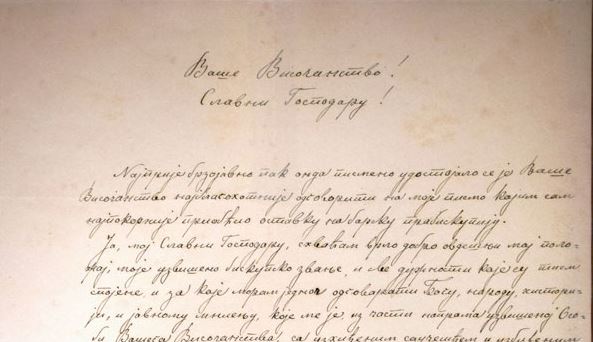 Ваше Височанство!
Славни Господару!
Најприје брзојавно пак онда писмено удостојало се је Ваше
Височанство најблагохотније одговорити на моје писмо којим сам
најпокорније приобћио оставку на барску прабискупију.
Ја, мој Славни Господару, схваћам врло добро овдешњи мој поло-
жај, моје узвишено бискупско звање, и све дужности које су тием
спојене, и за које морам једноч одговарати Богу, народу, хистори-
ји, и јавному мњењу, које ме је из части напрама узвишеној Осо-
би Вашега Височанства, са усхићеним саучешћем и